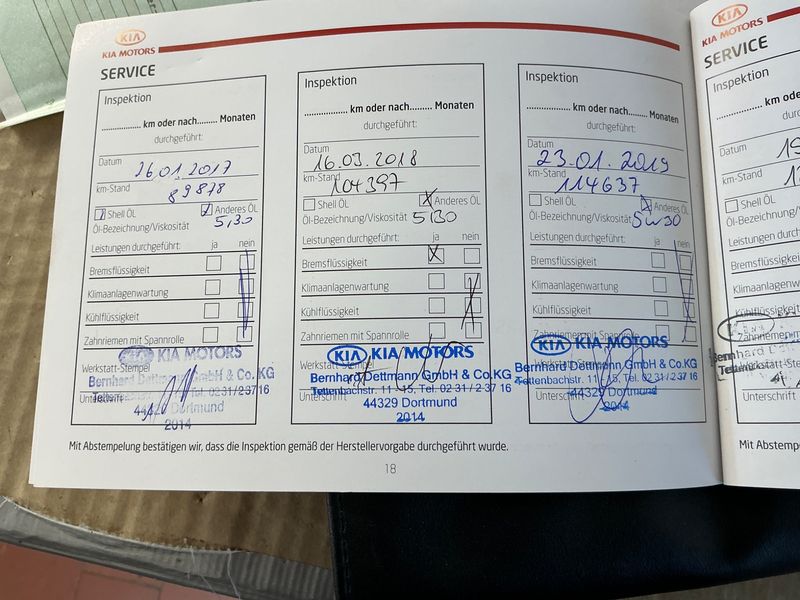 KIA
KIA MOTORS
SERVICE
Inspektion
.................. km oder nach......... Monaten
durchgeführt:
Datum
26.01.2017
km-Stand
89878
Shell ÖL
Anderes ÖL
Öl-Bezeichnung/Viskosität
5,30
Leistungen durchgeführt:
ja
nein
Bremsflüssigkeit
Klimaanlagenwartung
Kühlflüssigkeit
Zahnriemen mit Spannrolle
KIA MOTORS
Werkstatt-Stempel
Bernhard Dettmann GmbH & Co.KG
Tel. 02 31 / 2 37 16
Unterschrift
44329 Dortmund
2014
Inspektion
.................. km oder nach......... Monaten
durchgeführt:
Datum
16.03.2018
km-Stand
104397
Shell ÖL
X
Anderes ÖL
Öl-Bezeichnung/Viskosität
5i30
Leistungen durchgeführt:
ja
nein
Bremsflüssigkeit
X
Klimaanlagenwartung
Kühlflüssigkeit
Zahnriemen mit Spannrolle
KIA KIA MOTORS
Werkstatt-Stempel
Bernhard Dettmann GmbH & Co.KG
Tettenbachstr. 11 - 15, Tel. 02 31 / 2 37 16
Unterschrift
44329 Dortmund
2014
Inspektion
.................. km oder nach......... Monaten
durchgeführt:
Datum
23.01.2019
km-Stand
114637
Shell ÖL
Anderes ÖL
Öl-Bezeichnung/Viskosität
5W30
Leistungen durchgeführt:
ja
nein
Bremsflüssigkeit
Klimaanlagenwartung
Kühlflüssigkeit
Zahnriemen mit Spannrolle
KIA KIA MOTORS
Werkstatt-Stempel
Bernhard Dettmann GmbH & Co.KG
Tettenbachstr. 11 - 15, Tel. 02 31 / 2 37 16
Unterschrift
44329 Dortmund
2014
Mit Abstempelung bestätigen wir, dass die Inspektion gemäß der Herstellervorgabe durchgeführt wurde.
18
KIA
KIA MOTORS
SERVICE
Inspektion
.................. km
Datum
19
km-Stand
Shell ÖL
Öl-Bezeichnung
Leistungen durchgefü
Bremsflüssigkeit
Klimaanlagenwart
Kühlflüssigkeit
Zahnriemen
Bernhard
Werkstatt-Stem
Unterschrift
Mit Abstemp